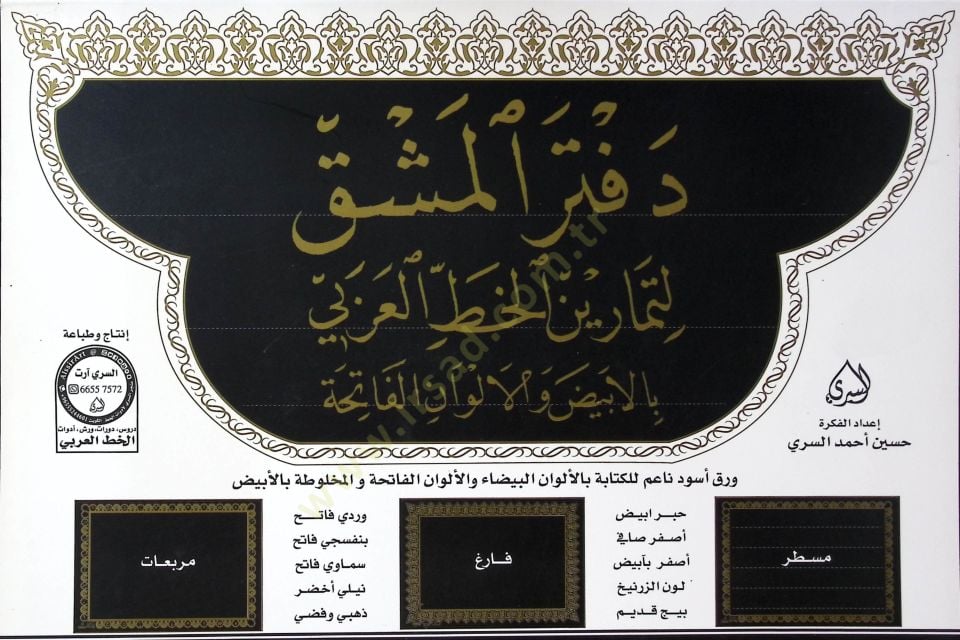 دفتر المشق
لتمارين الخط العربي
بالأبيض والألوان الفاتحة
www.irsad.com.tr
إعداد الفكرة
حسين أحمد السري
إنتاج وطباعة
السري آرت
6655 7572
دروس، دورات، ورش، أدوات
الخط العربي
ورق أسود ناعم للكتابة بالألوان البيضاء والألوان الفاتحة و المخلوطة بالأبيض
مسطر
حبر ابيض
أصفر صافي
أصفر بأبيض
لون الزرنيخ
بيج قديم
فارغ
وردي فاتح
بنفسجي فاتح
سماوي فاتح
نيلي أخضر
ذهبي وفضي
مربعات